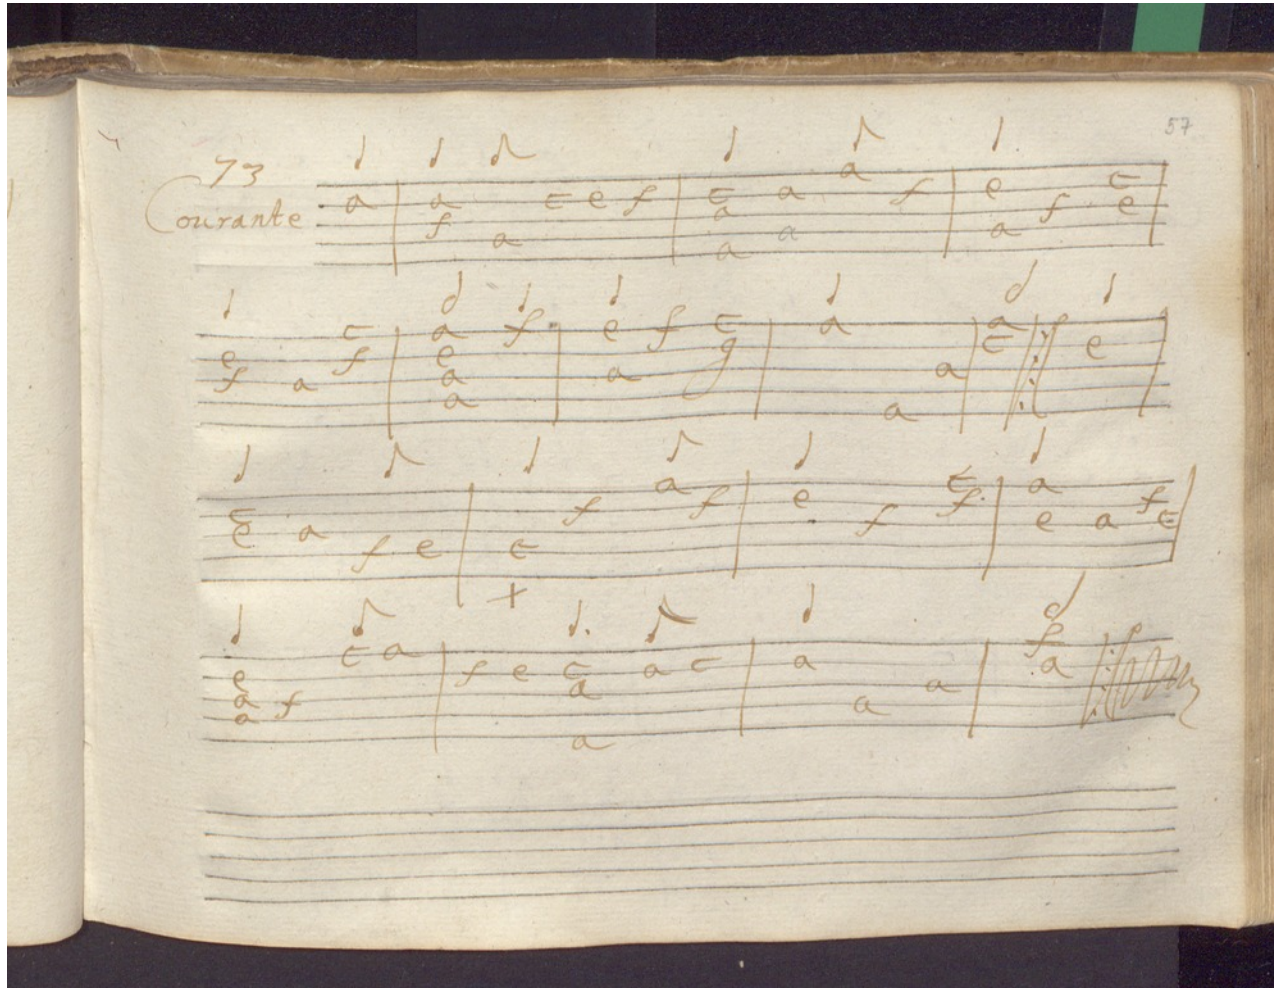 57
73
Courante
a a f a c e f c a a a a a f e a f c e
e f a c f a e a a f e a f c g a a a a c e
c e a f e c f a f e f c f a e a f c
e a a f c a f e c a a a c a a a f a